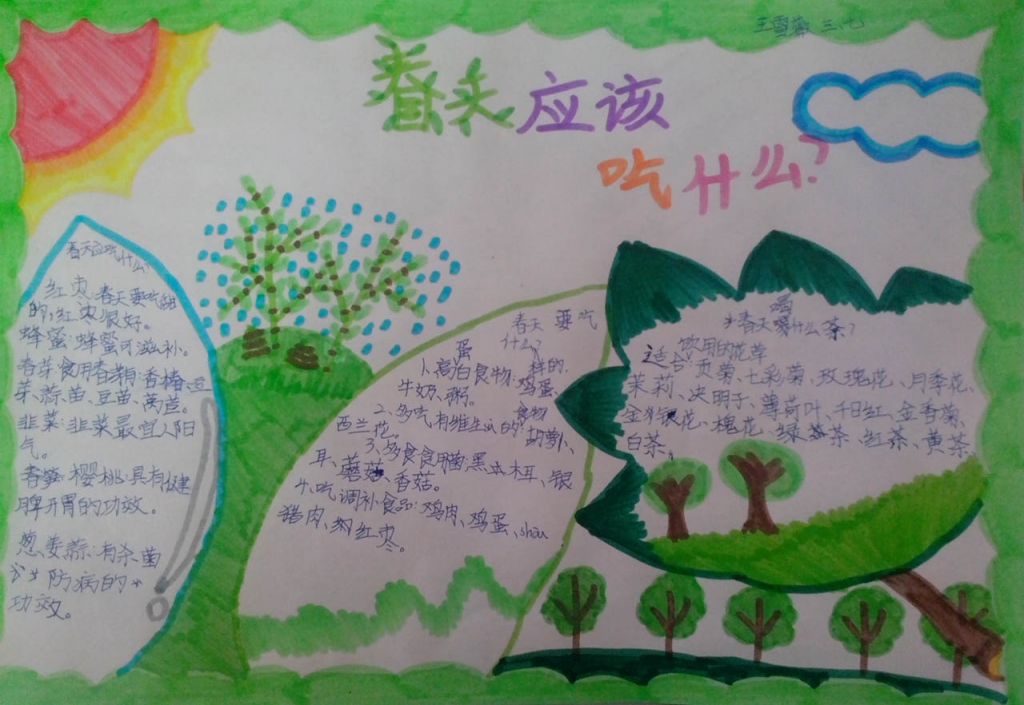 王雪 三、七
春天应该
吃什么?
春天应吃什么
红枣:春天要吃甜
的,红枣很好。
蜂蜜:蜂蜜可滋补。
春芽食用春芽有:香椿
芽、蒜苗、豆苗、莴苣。
韭菜:韭菜最宜人阳
气。
春笋:樱桃:具有健
脾开胃的功效。
葱姜蒜:有杀菌
防病的
功效。
春天要吃
什么?
1、高蛋白食物:鸡蛋、
牛奶、粥。
2、多吃有维生的食物:胡萝卜、
西兰花。
3、多食食用菌:黑木耳、银
耳、蘑菇、香菇。
4、吃调补食品:鸡肉、鸡蛋、shòu
猪肉、红枣。
春天喝什么茶?
适合饮用的花草
茉莉、贡菊、七彩菊、玫瑰花、月季花、
金银花、决明子、薄荷叶、千日红、金香菊、
白茶、槐花、绿茶、红茶、黄茶。